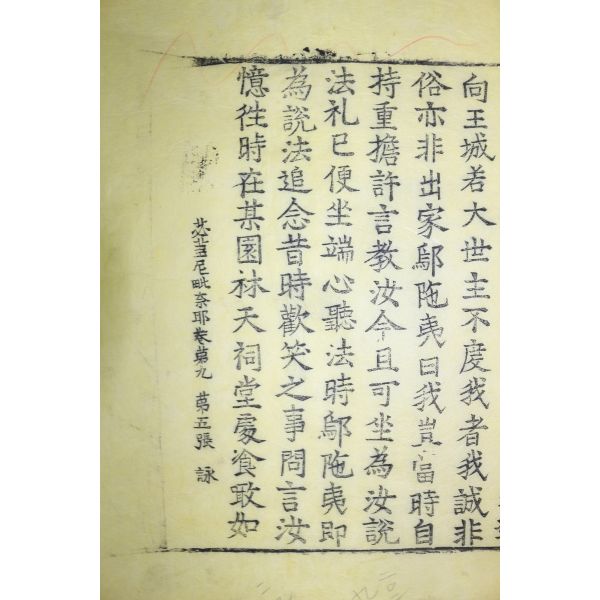 向王城若大世主不度我者我誠非
俗亦非出家鄔陁夷曰我豈當時自
持重擔許言教汝今且可坐為汝說
法礼已便坐端心聽法時鄔陁夷即
為說法追念昔時歡笑之事問言汝
憶徃時在某園林天祠堂處飡敢如
苾蒭尼毗奈耶卷第九 第五張 詠